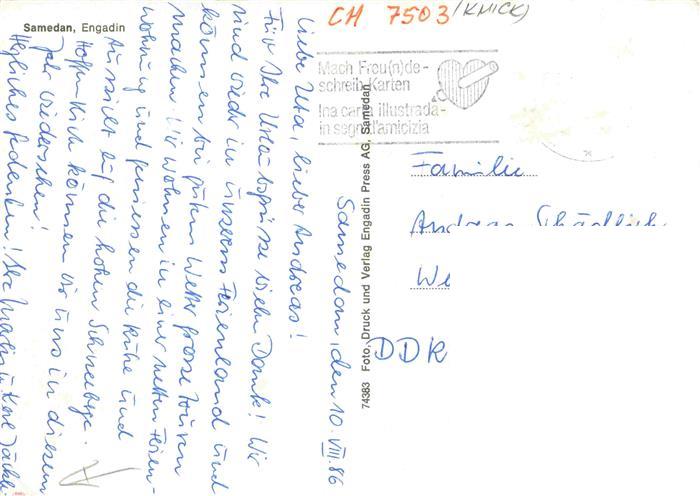 Samedan, Engadin
CH 7503 (KNICK)
Mach Freu(n)de-
schreib Karten
Ina carta illustrada-
in segn d'amicizia
Samedan, den 10. VIII. 86
Liebe Uta, lieber Andreas!
Für Ihre Urlaubsgrüsse vielen Dank! Wir
sind wieder in unserem Ferienland und
können bei gutem Wetter grosse Touren
machen. Wir wohnen in einer netten Ferien-
wohnung und geniessen die Ruhe und
Aussicht auf die hohen Schneeberge.
Hoffentlich können wir uns in diesem
Jahr wiedersehen!
Herzliches Gedenken! Ihre
74383 Foto, Druck und Verlag Engadin Press AG, Samedan
Familie
Andreas
We
DDR